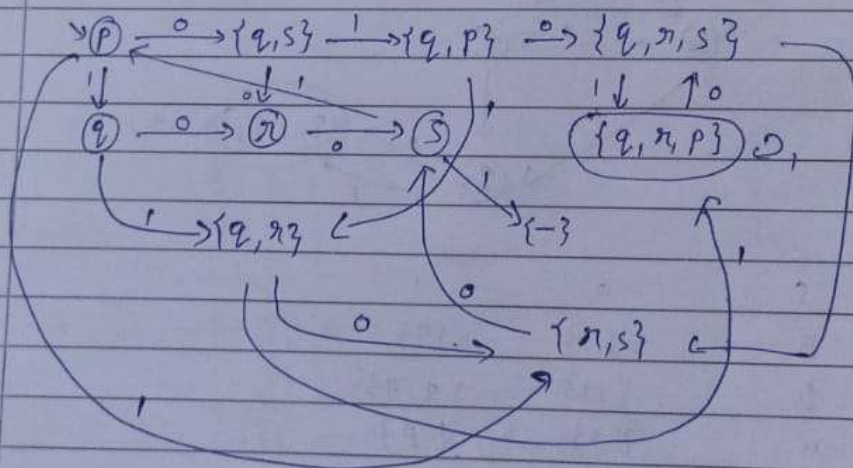 p 0 {q,s} 1 {q,p} 0 {q,r,s}
1 0 1 1 1 0
q 0 r 0 s {q,r,p} 1
1 {q,r} 1 {-} 1
0
0 {r,s}
1